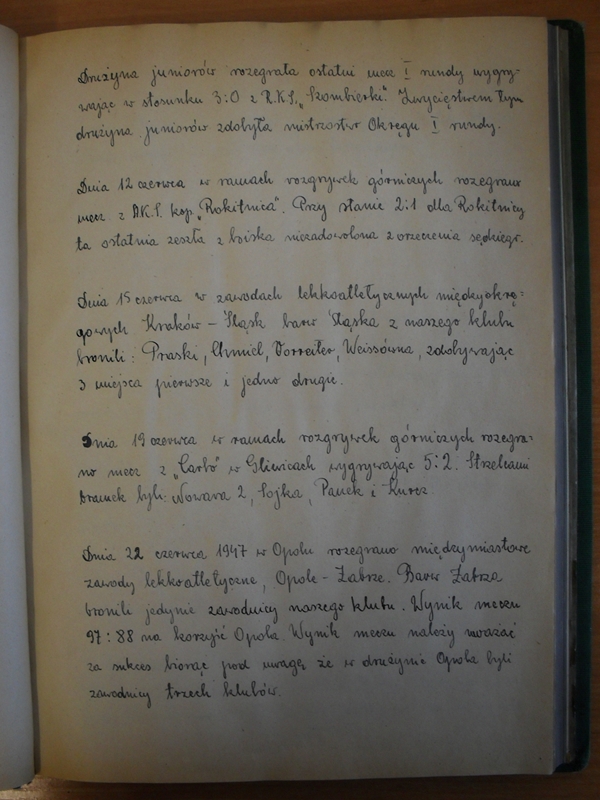 Drużyna juniorów rozegrała ostatni mecz I rundy wygry-
wając w stosunku 3:0 z R.K.S. „Szombierki". Zwycięstwem tym
drużyna juniorów zdobyła mistrzostw Okręgu I rundy.
Dnia 12 czerwca w ramach rozgrywek górniczych rozegrano
mecz z R.K.S. kop. „Rokitnica". Przy stanie 2:1 dla Rokitnicy
ta ostatnia zeszła z boiska niezadowolona z orzeczenia sędziego.
Dnia 15 czerwca w zawodach lekkoatletycznych międzyokrę=
gowych Kraków – Śląsk barw Śląska z naszego klubu
bronili: Praski, Chmiel, Vorreiter, Weissówna, zdobywając
3 miejsca pierwsze i jedno drugie.
Dnia 19 czerwca w ramach rozgrywek górniczych rozegra=
no mecz z „Carbo" w Gliwicach wygrywając 5:2. Strzelcami
bramek byli: Nowara 2, Sojka, Panek i Kurcz.
Dnia 22 czerwca 1947 w Opolu rozegrano międzymiastowe
zawody lekkoatletyczne, Opole – Zabrze. Barw Zabrza
bronili jedynie zawodnicy naszego klubu. Wynik meczu
97:88 na korzyść Opola. Wynik meczu należy uważać
za sukces biorąc pod uwagę, że w drużynie Opola byli
zawodnicy trzech klubów.